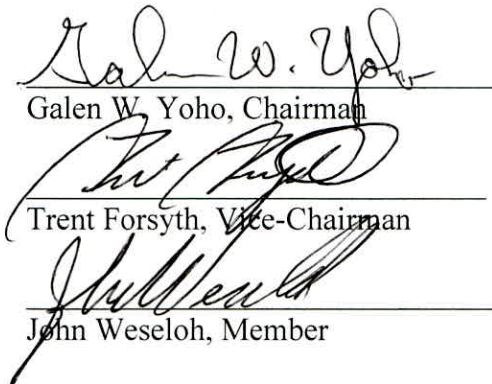 Galen W. Yoho
Galen W. Yoho, Chairman
Trent Forsyth, Vice-Chairman
John Weseloh
John Weseloh, Member